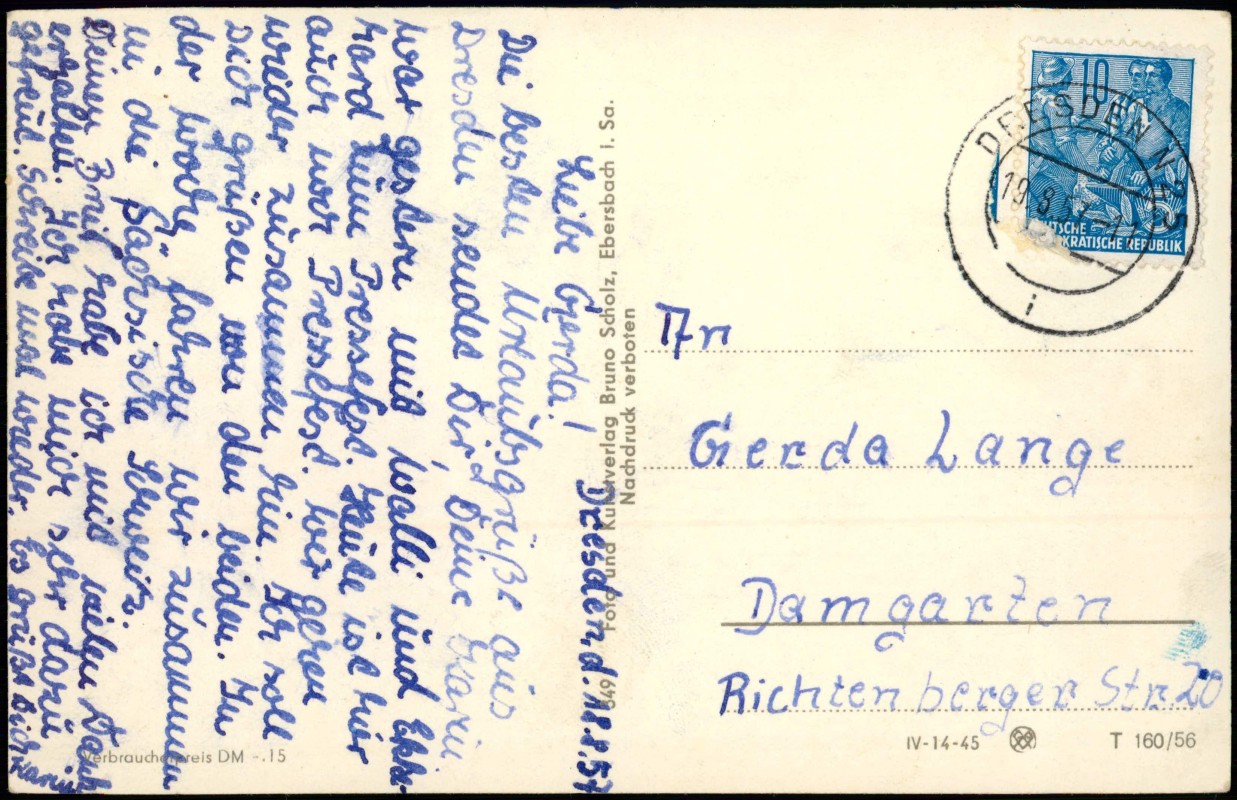 Dresden, d. 18.8.57
Liebe Gerda!
Die besten Urlaubsgrüße aus
Dresden sendet Dir Deine Karin
War gestern mit Walli und Ekke-
hard zum Pressefest. Heute ist hier
auch noch Pressefest. Wir gehen
wieder zusammen hin. Ich soll
Dich grüßen von den beiden. In
der Woche fahren wir zusammen
in die Sächsische Schweiz.
Deinen Brief habe ich mit vielen Dank
erhalten. Ich habe mich sehr dazu
gefreut. Schreibe mal wieder. Es grüßt Dich Karin
Verbraucherpreis DM -.15
649 Foto und Kunstverlag Bruno Scholz, Ebersbach i. Sa.
Nachdruck verboten
10
DEUTSCHE
DEMOKRATISCHE REPUBLIK
DRESDEN N 25
19.8.57
i
An
Gerda Lange
Damgarten
Richtenberger Str. 20
IV-14-45
T 160/56